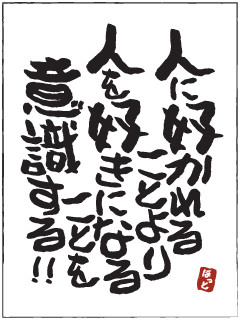 人に好かれる
ことより
人を好きになる
ことを
意識する!!
ほっと